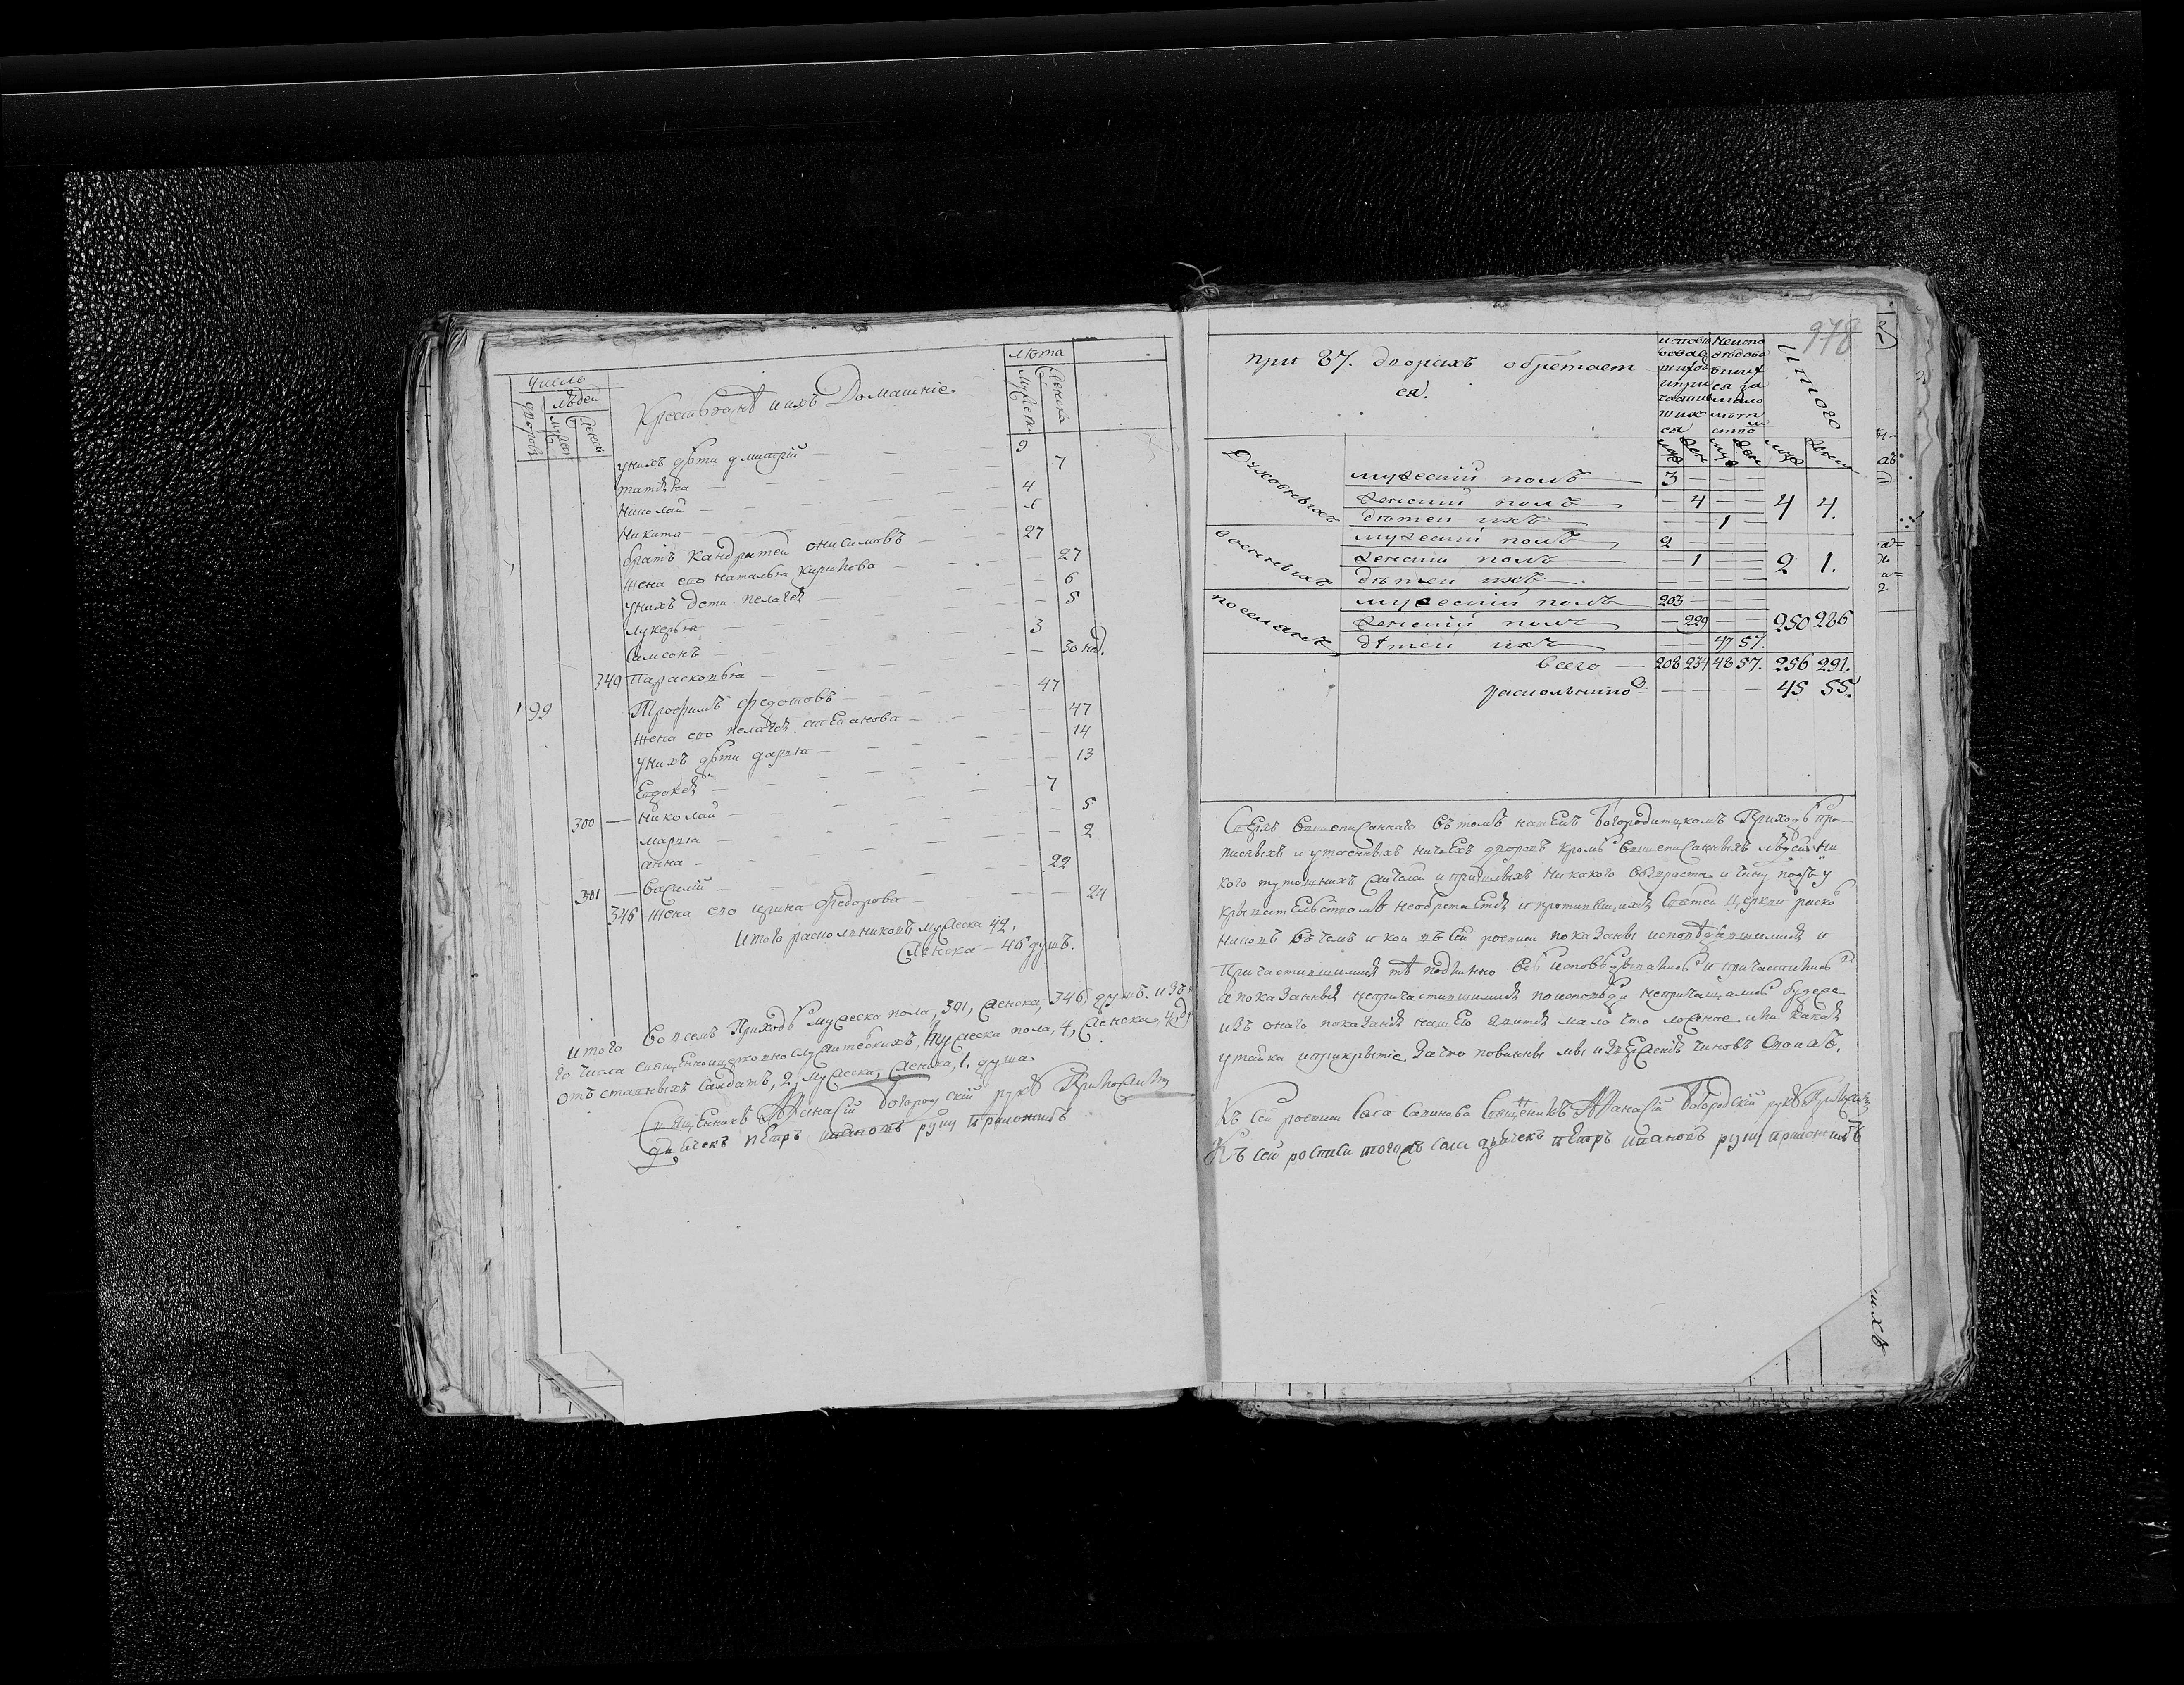 число
людей
дворовъ
мужеск
женск
Крестьянѣ ихъ домашніе
лѣта
мужеска
женска
у нихъ дѣти дмитрій — 9
татіяна — 7
николай — 4
никита — 1
братъ кандратей онисимовъ — 27
жена его наталья кирилова — 27
у нихъ дети пелагея — 6
лукерья — 5
самсонъ — 3
349 парасковья — 30 нед.
99 Трофимъ федотовъ — 47
жена его пелагея степанова — 47
у нихъ дѣти дарья — 14
Евдокея — 13
300 — николай — 7
марья — 5
анна — 2
301 — василій — 22
346 жена его ирина федорова — 24
Итого раскольниковъ мужеска 42,
женска — 46 душъ.
итого во всемъ Приходѣ мужеска пола, 301, женска, 346, душъ. изъ
го числа священноцерковнослужительскихъ, мужеска пола, 4, женска, 4
отъставныхъ салдатъ, 2, мужеска, женска, 1, душа.
Священникъ Афанасій Богородскій руку Приложилъ
дьячекъ петръ ивановъ руку приложилъ
978
при 87. дворахъ обретает
ся.
исповѣдовавшихся и причастившихся
неисповѣдовавшихся за малолѣтствомъ
итого
муж жен муж жен муж женск
Духовныхъ
мужескій полъ 3 — — —
женскій полъ — 4 — — 4 4.
дѣтей ихъ — — 1 —
военныхъ
мужескій полъ 2 — — —
женскій полъ — 1 — — 2 1.
дѣтей ихъ
поселянъ
мужескій полъ 203 — — —
женскій полъ — 229 — — 250 286
дѣтей ихъ — — 47 57.
всего — 208 234 48 57. 256 291.
раскольнико — 45 55.
Сверхъ вышеписаннаго въ томъ нашемъ Богородитцкомъ Приходѣ про-
писныхъ и утаенныхъ ничьихъ дворовъ кромѣ вышеписанныхъ людей ни
кого тутошнихъ жителей и пришлыхъ никакого возраста и чину подъ у
крывательствомъ необретается и противящихся святей церкви раско
никовъ въ чемъ и кои въ сей росписи показаны исповѣдавшимися и
Причастившимися тѣ подлинно всѣ исповѣдывались и причастились
а показанныя непричастившимися по исповѣди непричащались буде же
изъ онаго показанія нашего явится мало что ложное или какая
утайка и прикрытіе за что повинны мы извержены чиновъ своихъ.
Къ сей росписи села Священникъ Афанасій Богородскій руку Приложилъ
Къ сей росписи тогожъ села дьячекъ петръ ивановъ руку приложилъ